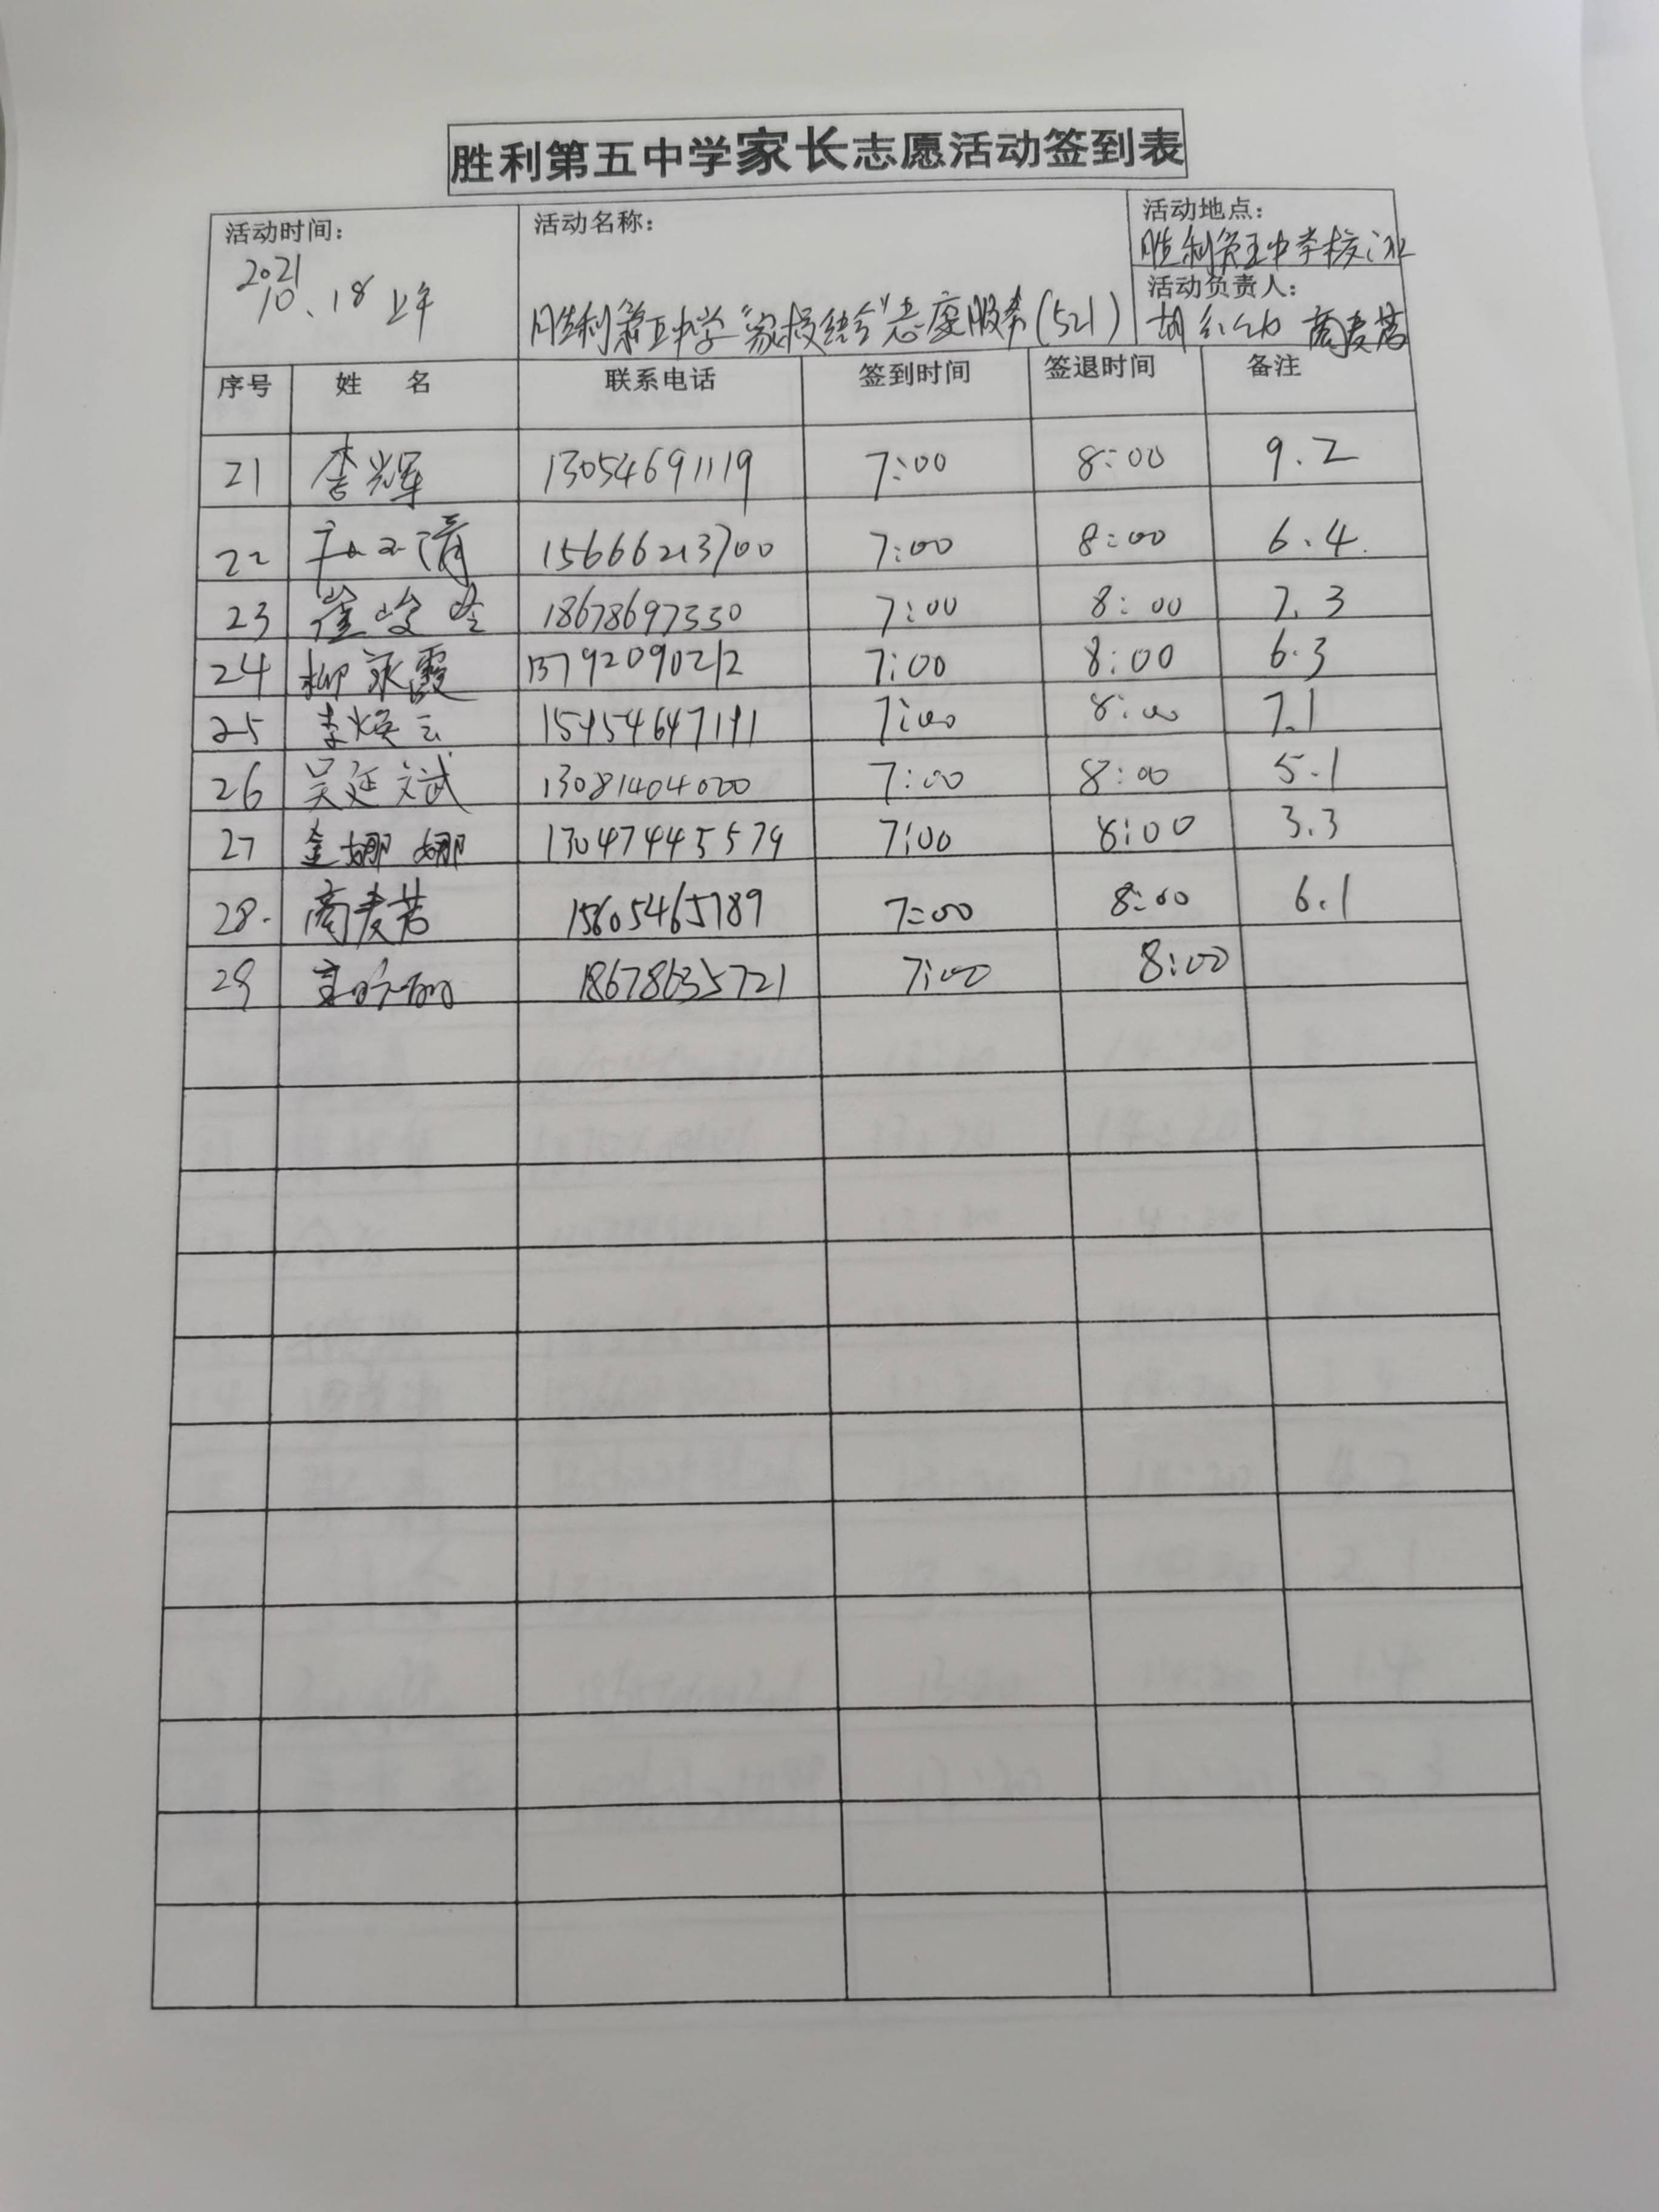 胜利第五中学家长志愿活动签到表
活动时间：
2021
10、18 上午
活动名称：
胜利第五中学"家校结合"志愿服务(521)
活动地点：
胜利第五中学校门北
活动负责人：
胡 商麦茗
序号 姓 名 联系电话 签到时间 签退时间 备注
21 李光军 13054691119 7:00 8:00 9.2
22 清 15666213700 7:00 8:00 6.4
23 崔峻 18678697330 7:00 8:00 7.3
24 柳永霞 13792090212 7:00 8:00 6.3
25 李焕云 15954647191 7:00 8:00 7.1
26 吴延文武 13081404000 7:00 8:00 5.1
27 金娜娜 13047445579 7:00 8:00 3.3
28. 商麦茗 15605465789 7:00 8:00 6.1
29 18678635721 7:00 8:00